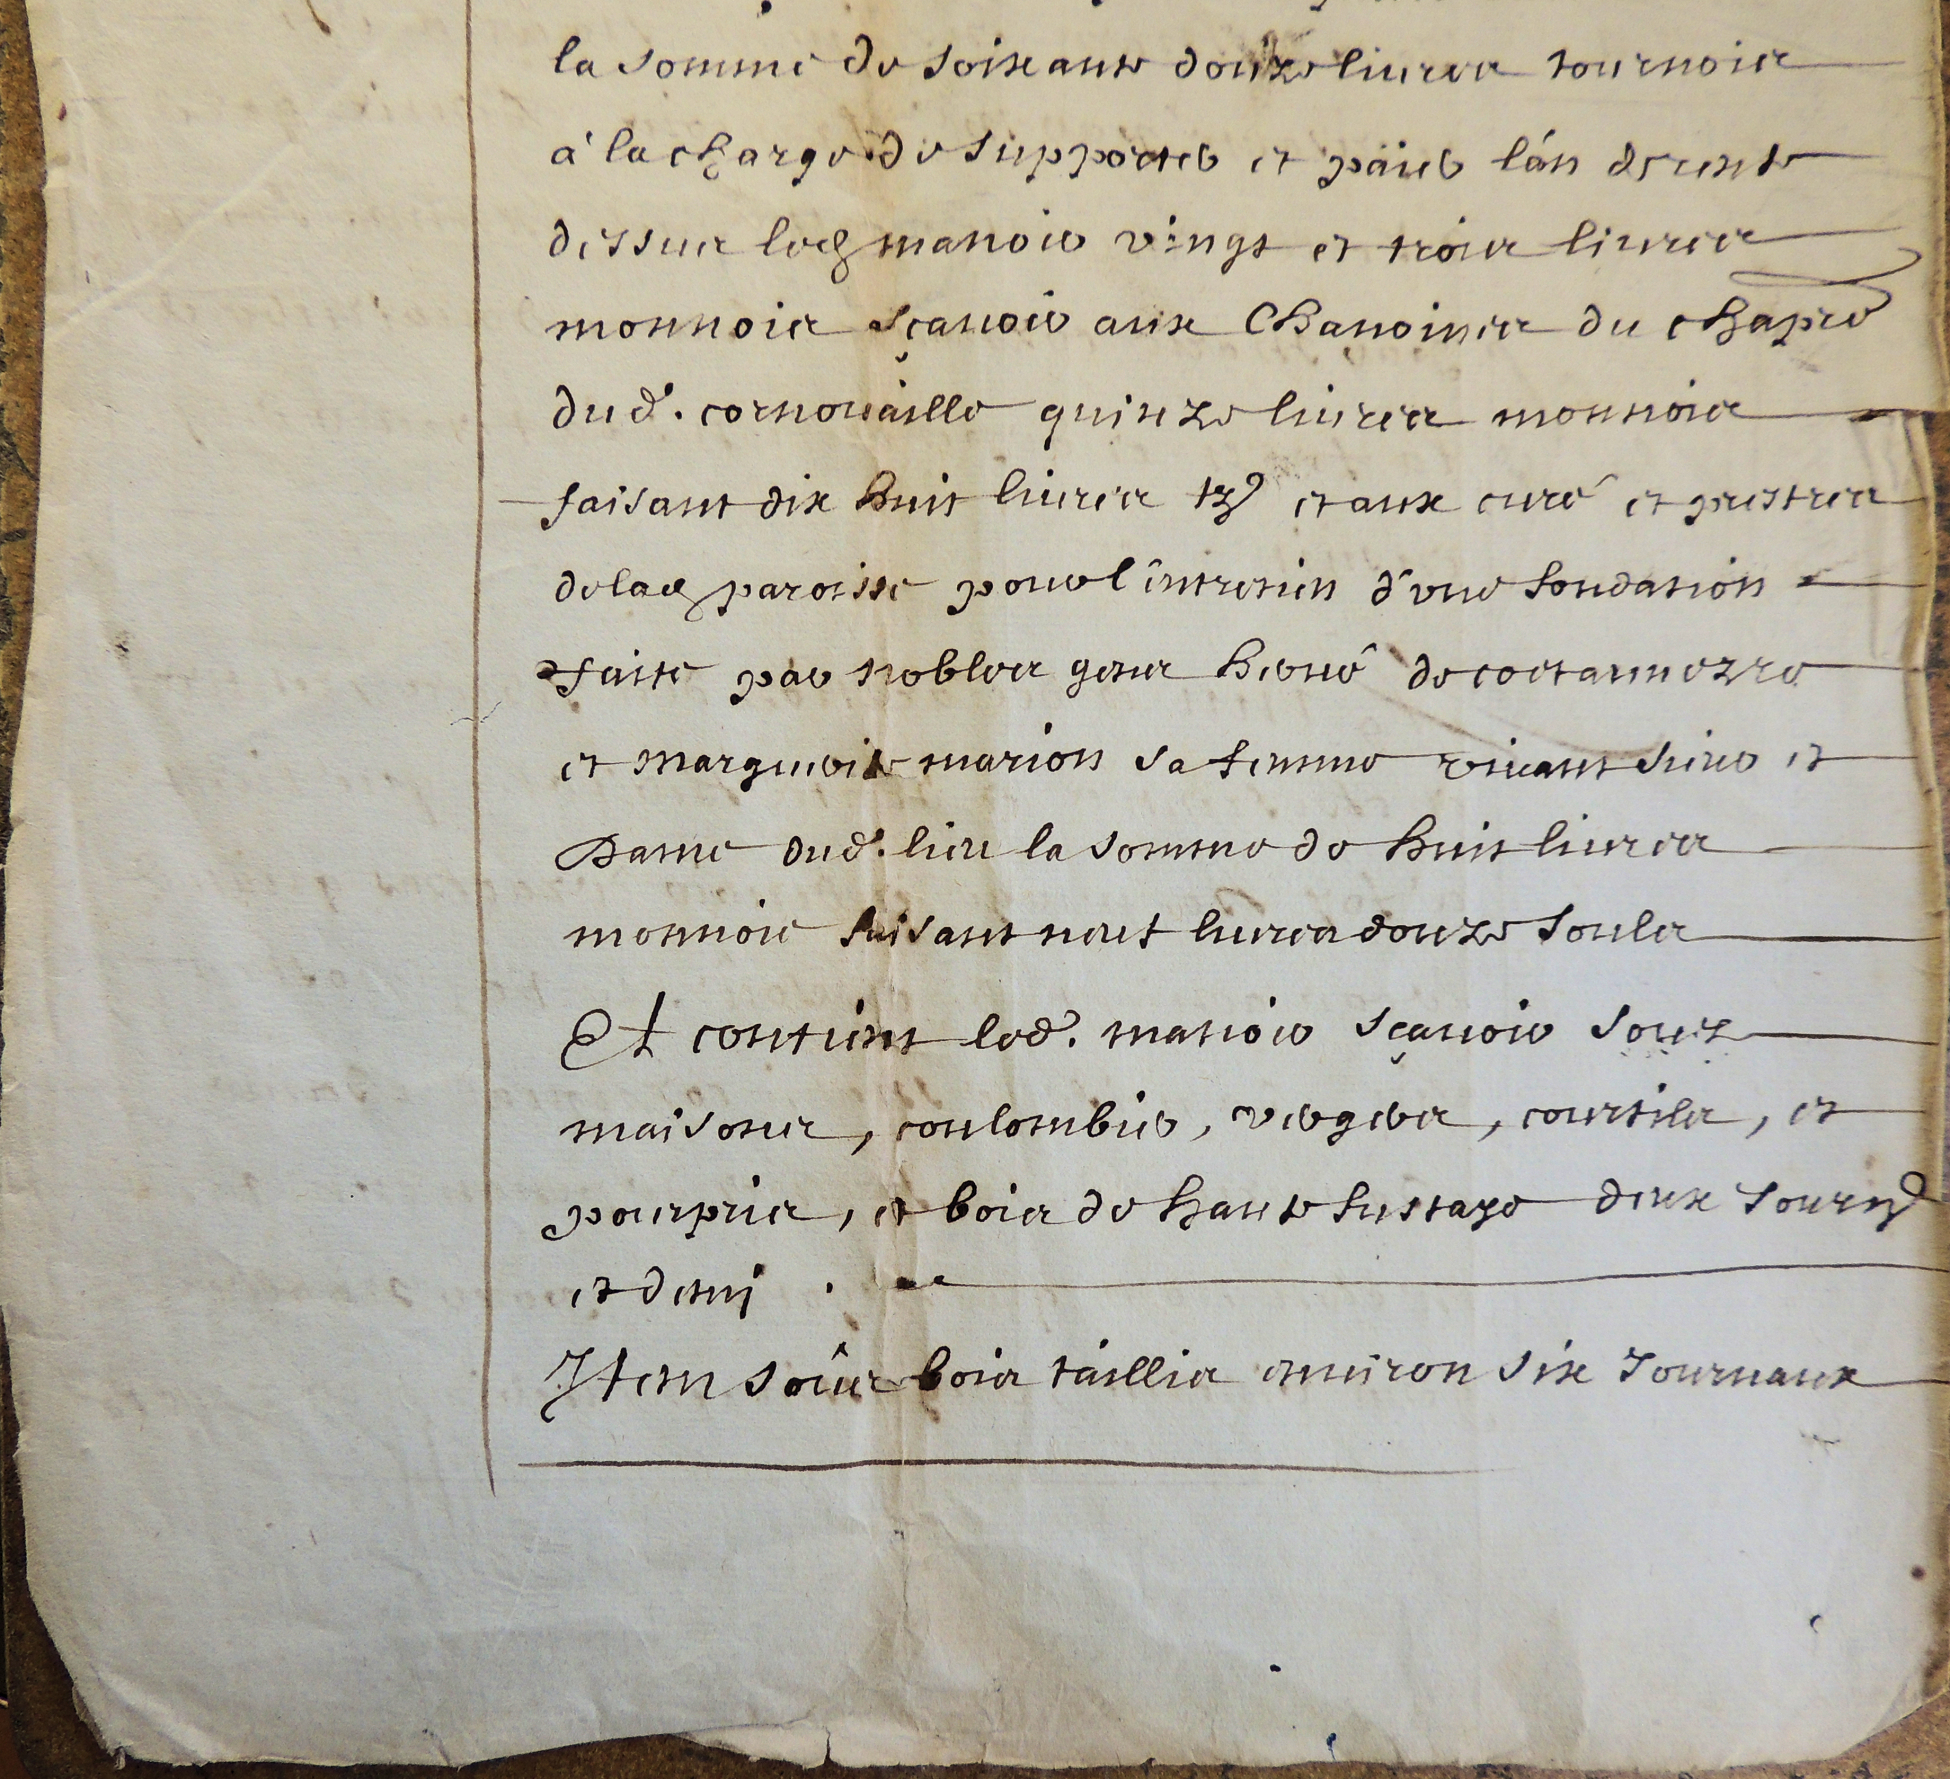 la somme de soixante douze liures tournois
à la charge de supporter et païer l'an de rente
dessus led manoir vingt et trois liures
monnoie sçauoir aux Chanoines du chapre
dud. cornouaille quinze liures monnoie
faisant dix huit liures tz et aux curé et prestres
de lad paroisse pour l'entretien d'une fondation
faite par nobles gens herué de coetanmezre
et marguerite marion sa femme viuant sieur et
Dame dud. lieu la somme de huit liures
monnoie faisant neuf liures douze souls
Et contient led. manoir sçauoir souz
maisons, coulombier, vergers, courtils, et
pourpris, et bois de haute fustaye deux Journ
et demj .
Item sous bois taillis enuiron six Journaux